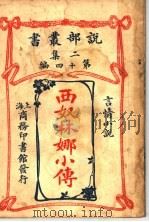 說部叢書
二集
第十四編
言情小說
西奴林娜小傳
上海
商務印書館發行